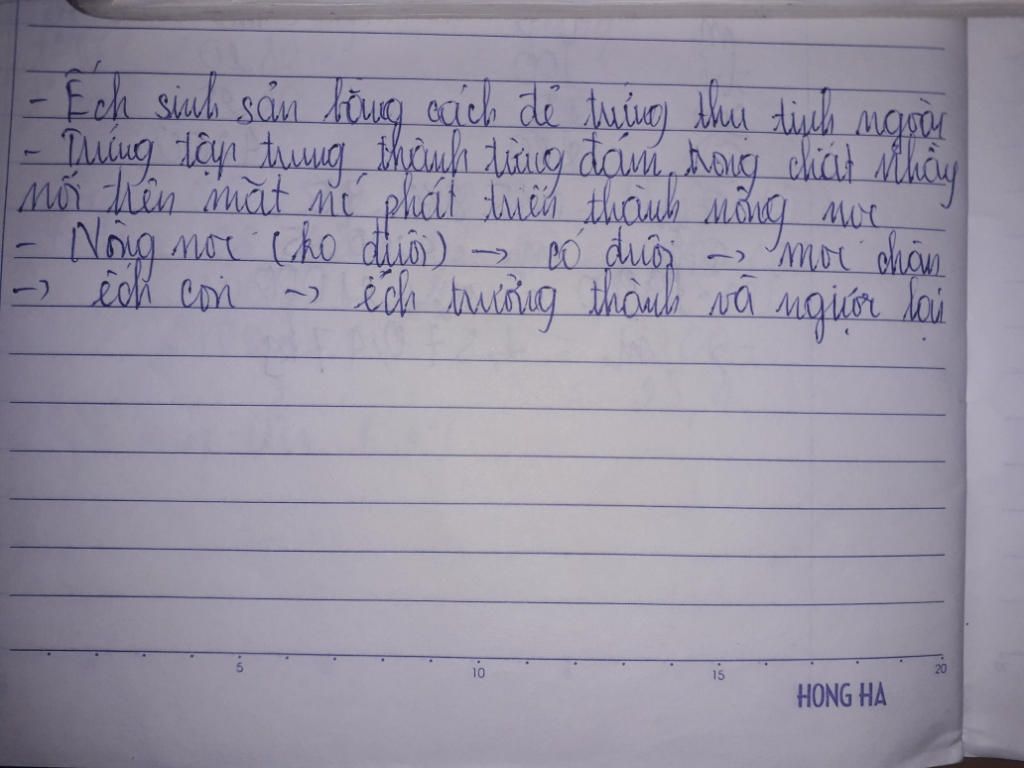 - Ếch sinh sản bằng cách đẻ trứng thụ tinh ngoài
- Trứng tập trung thành từng đám trong chất nhầy
nổi trên mặt nc phát triển thành nòng nọc
- Nòng nọc (ko đuôi) → có đuôi → mọc chân
→ ếch con → ếch trưởng thành và ngược lại
5 10 15 20
HONG HA